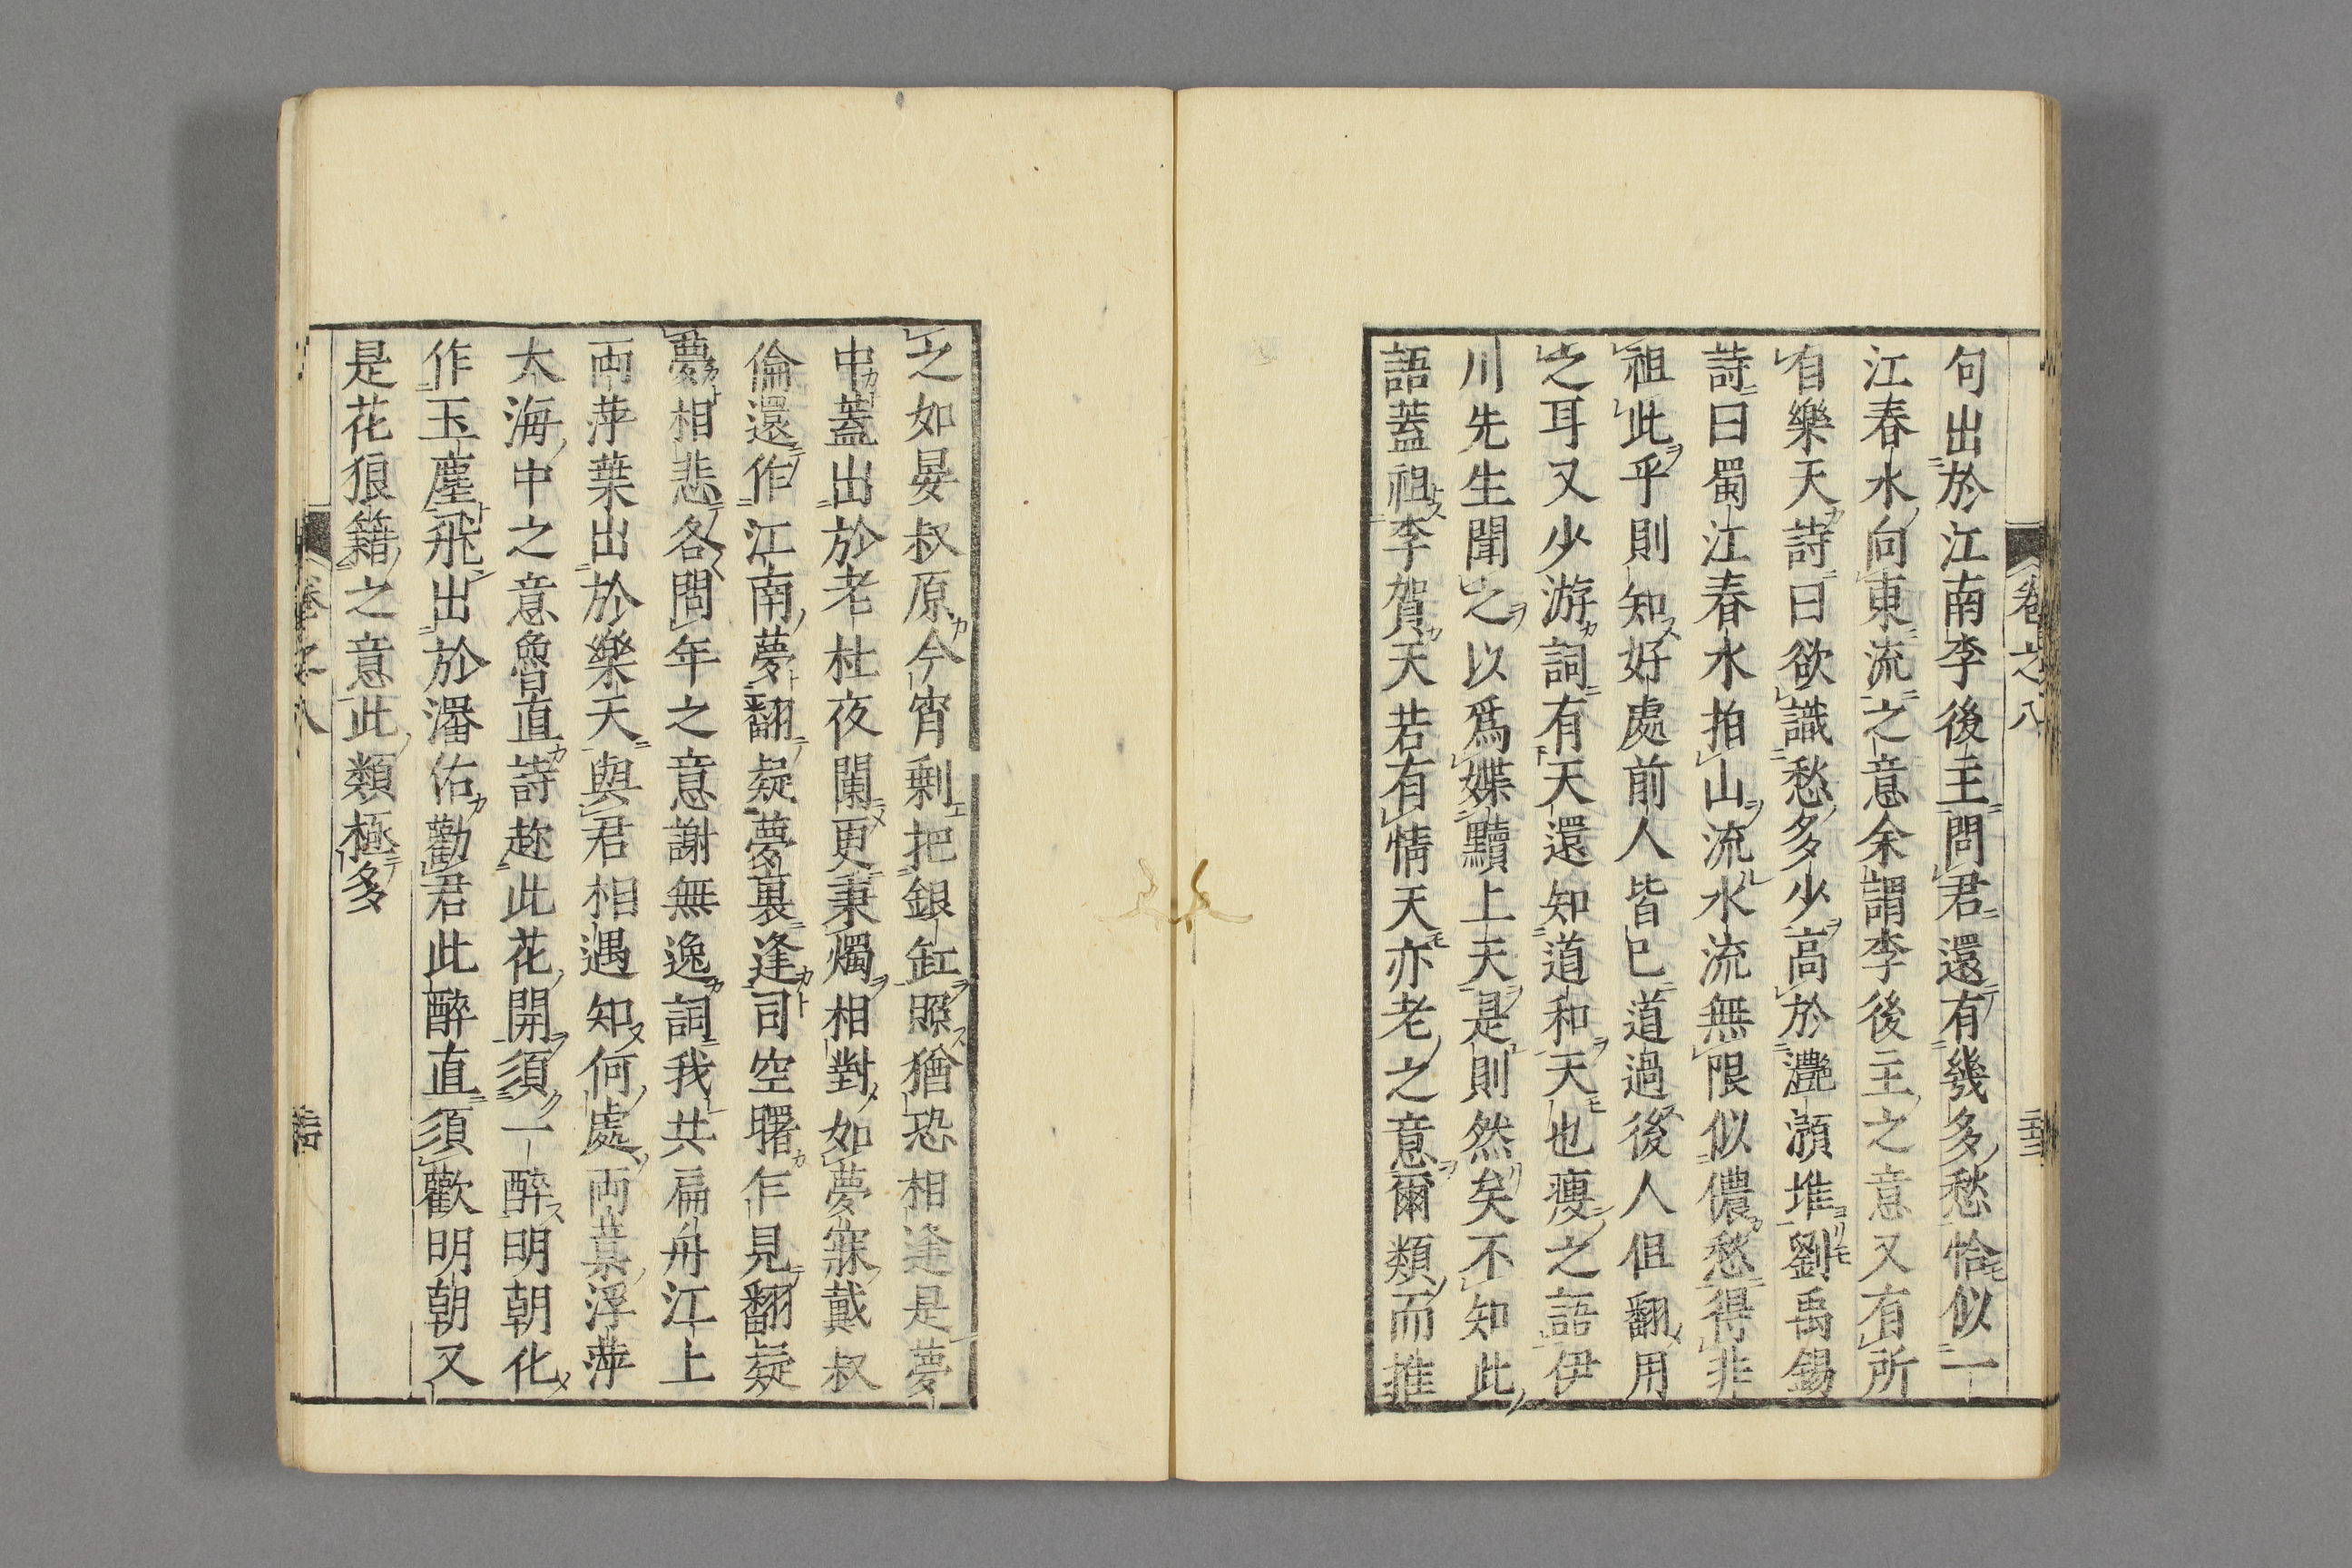 句出於江南李後主問君還有幾多愁恰似一
江春水向東流之意余謂李後主之意又有所
自樂天詩曰欲識愁多少高於灔澦堆劉禹錫
詩曰蜀江春水拍山流水流無限似儂愁得非
祖此乎則知好處前人皆已道過後人但翻用
之耳又少游詞有天還知道和天也瘦之語伊
川先生聞之以爲媟黷上天是則然矣不知此
語蓋祖李賀天若有情天亦老之意爾類而推
卷之八
之如晏叔原今宵剩把銀缸照猶恐相逢是夢
中蓋出於老杜夜闌更秉燭相對如夢寐戴叔
倫還作江南夢翻疑夢裏逢司空曙乍見翻疑
夢相悲各問年之意謝無逸詞我共扁舟江上
兩萍葉出於樂天與君相遇知何處兩葉浮萍
大海中之意魯直詩趂此花開須一醉明朝化
作玉塵飛出於潘佑勸君此醉直須歡明朝又
是花狼籍之意此類極多
卷之八